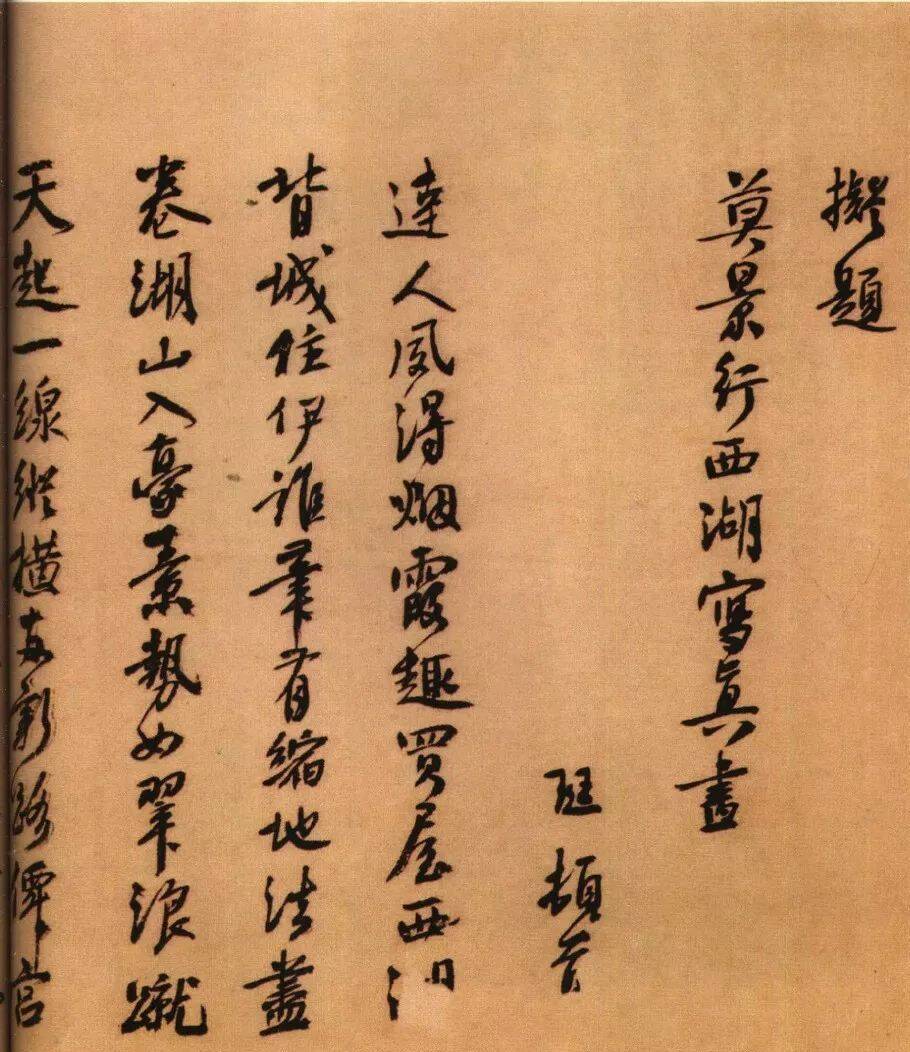 擬題
莫景行西湖寫真畫
頓首
達人夙得烟霞趣買屋西湖
背城住伊誰筆有縮地法盡
卷湖山入豪素勢如翠浪蹴
天起一線縱橫新路宮